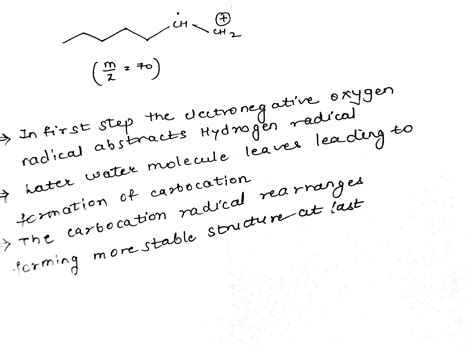 ĊH
⊕
CH2
(m/z = 70)
→ In first step the electronegative oxygen
radical abstracts Hydrogen radical
→ Later water molecule leaves leading to
formation of carbocation
→ The carbocation radical rearranges
forming more stable structure at last